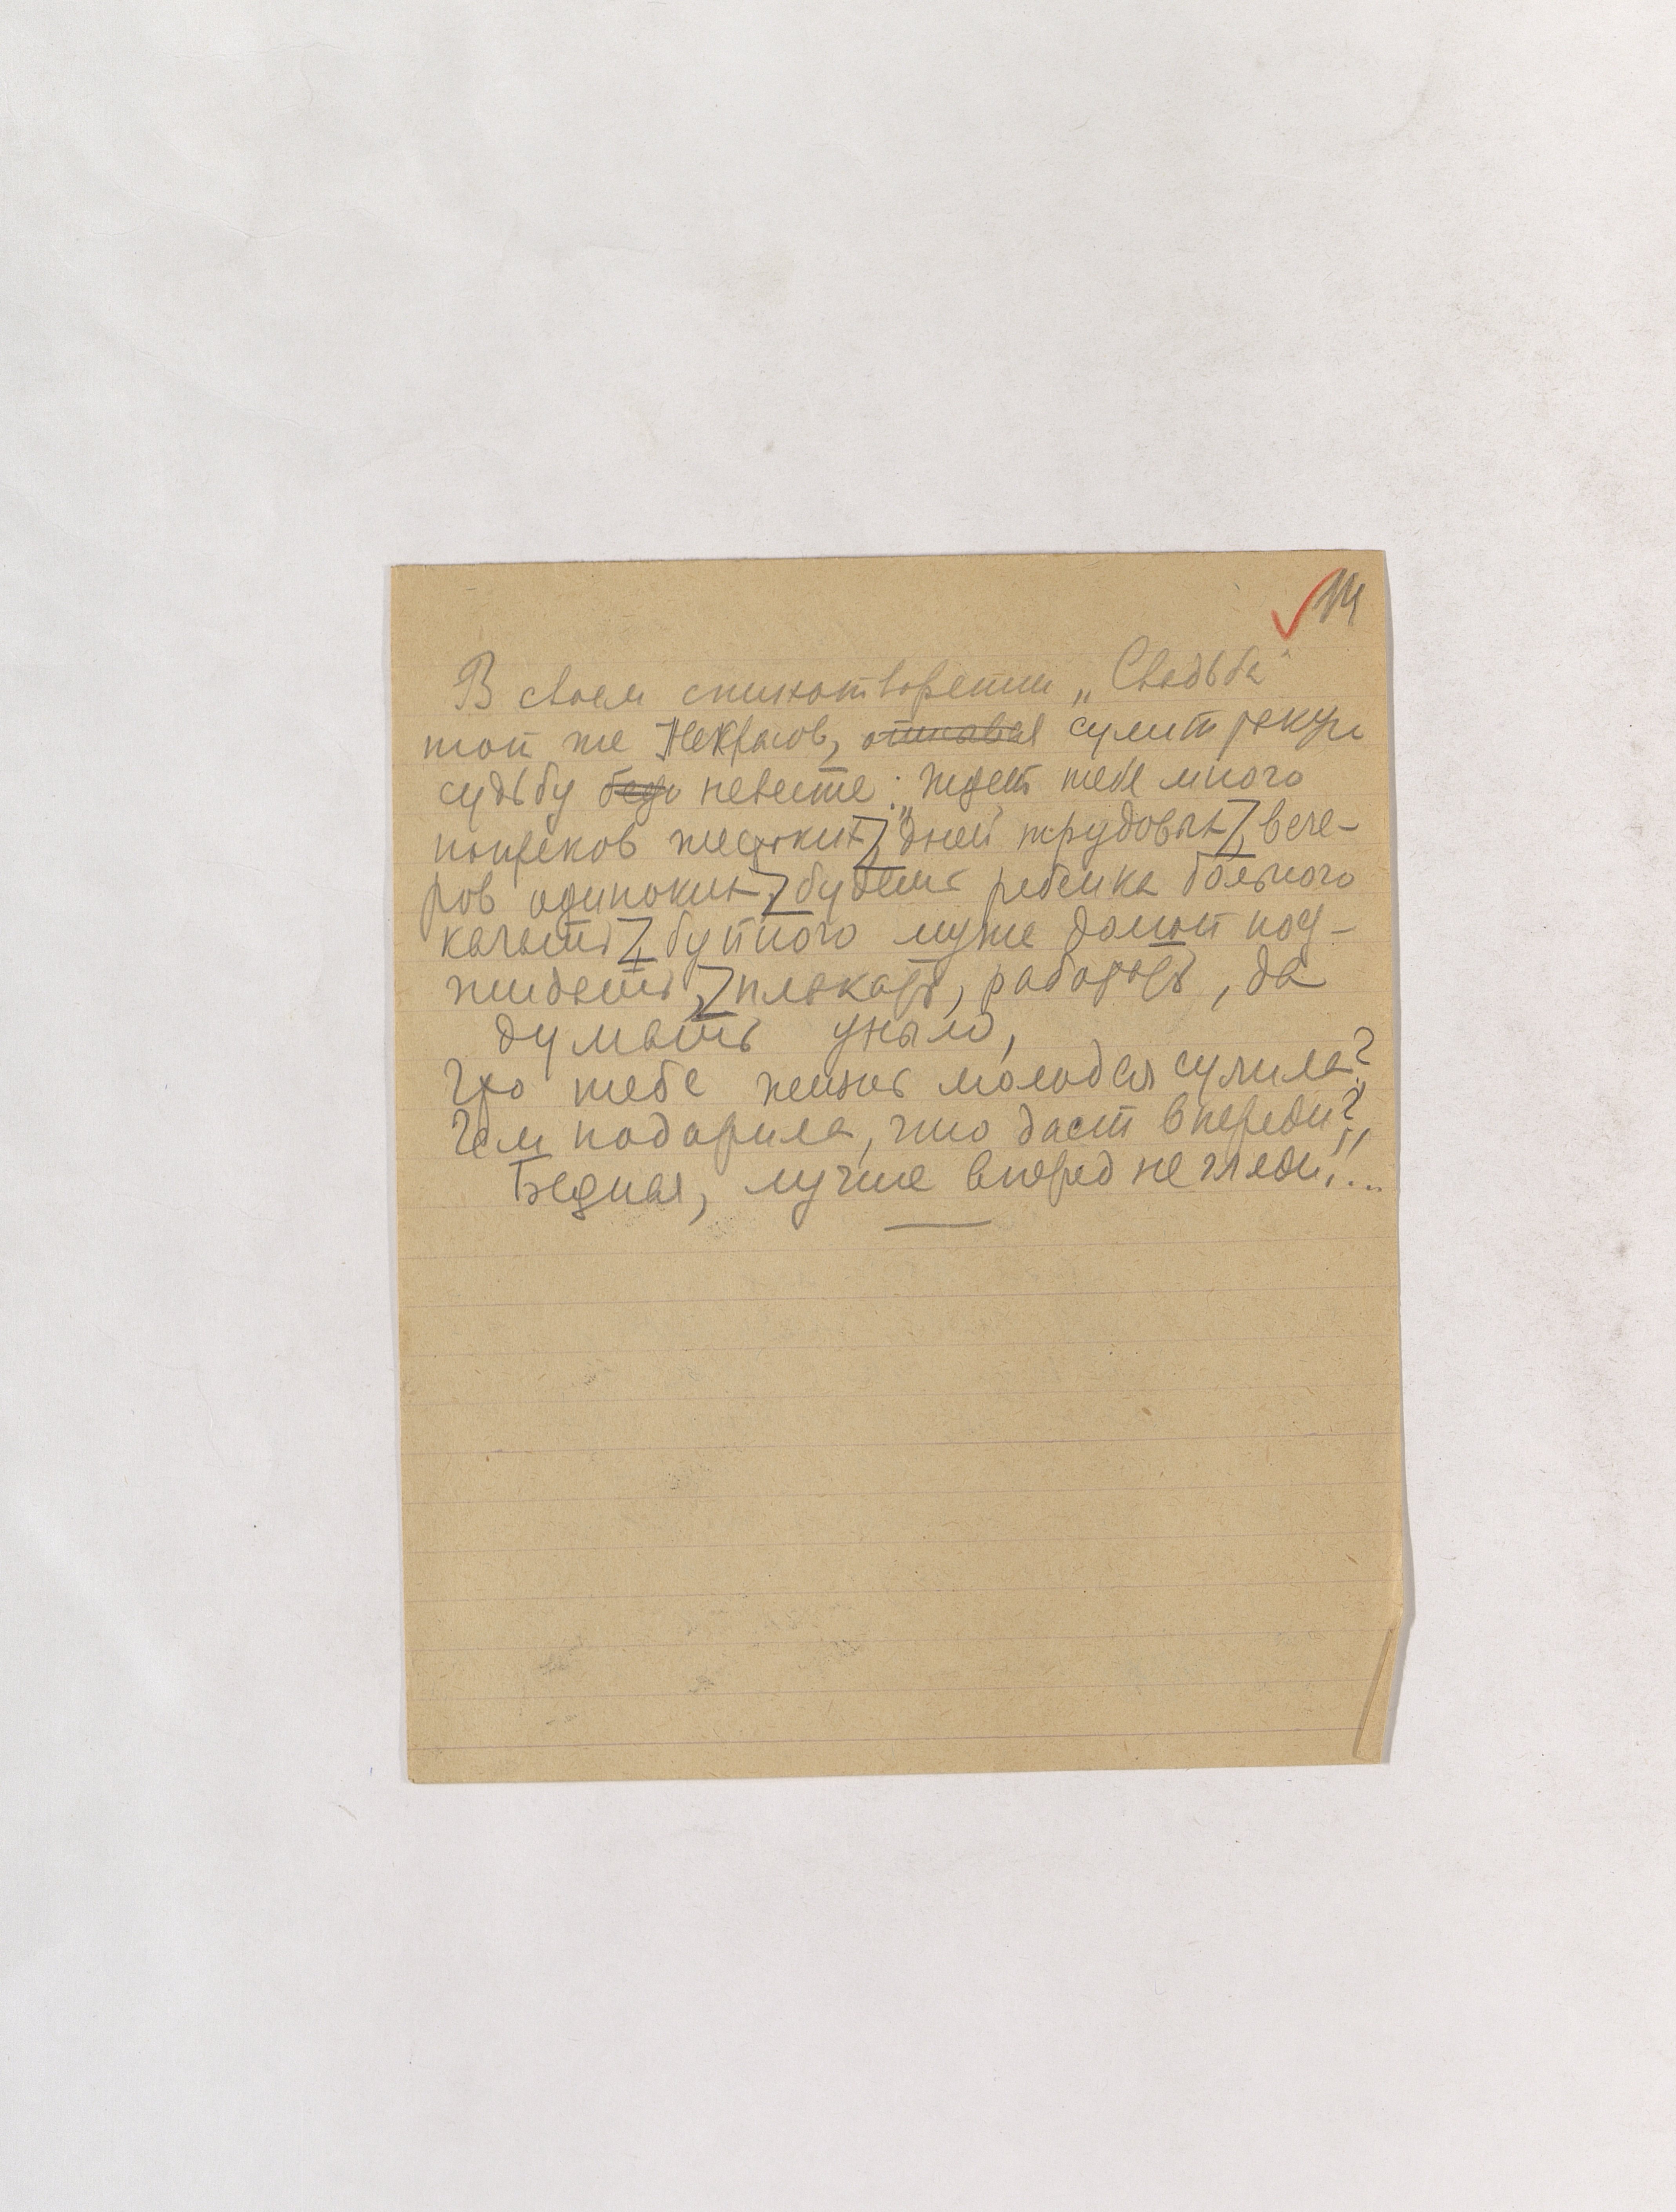 14
В своем стихотворении „Свадьба“
той же Некрасов, описывая сулит такую
судьбу бедо невесте: „Ждет тебя много
попреков жестоких, дней трудовых, вече-
ров одиноких, будешь ребенка больного
качать, буйного мужа домой под-
жидать, плакать, работать, да
думать уныло,
Что тебе жизнь молодая сулила?
Чем подарила, что даст впереди?
Бедная, лучше вперед не гляди!“...